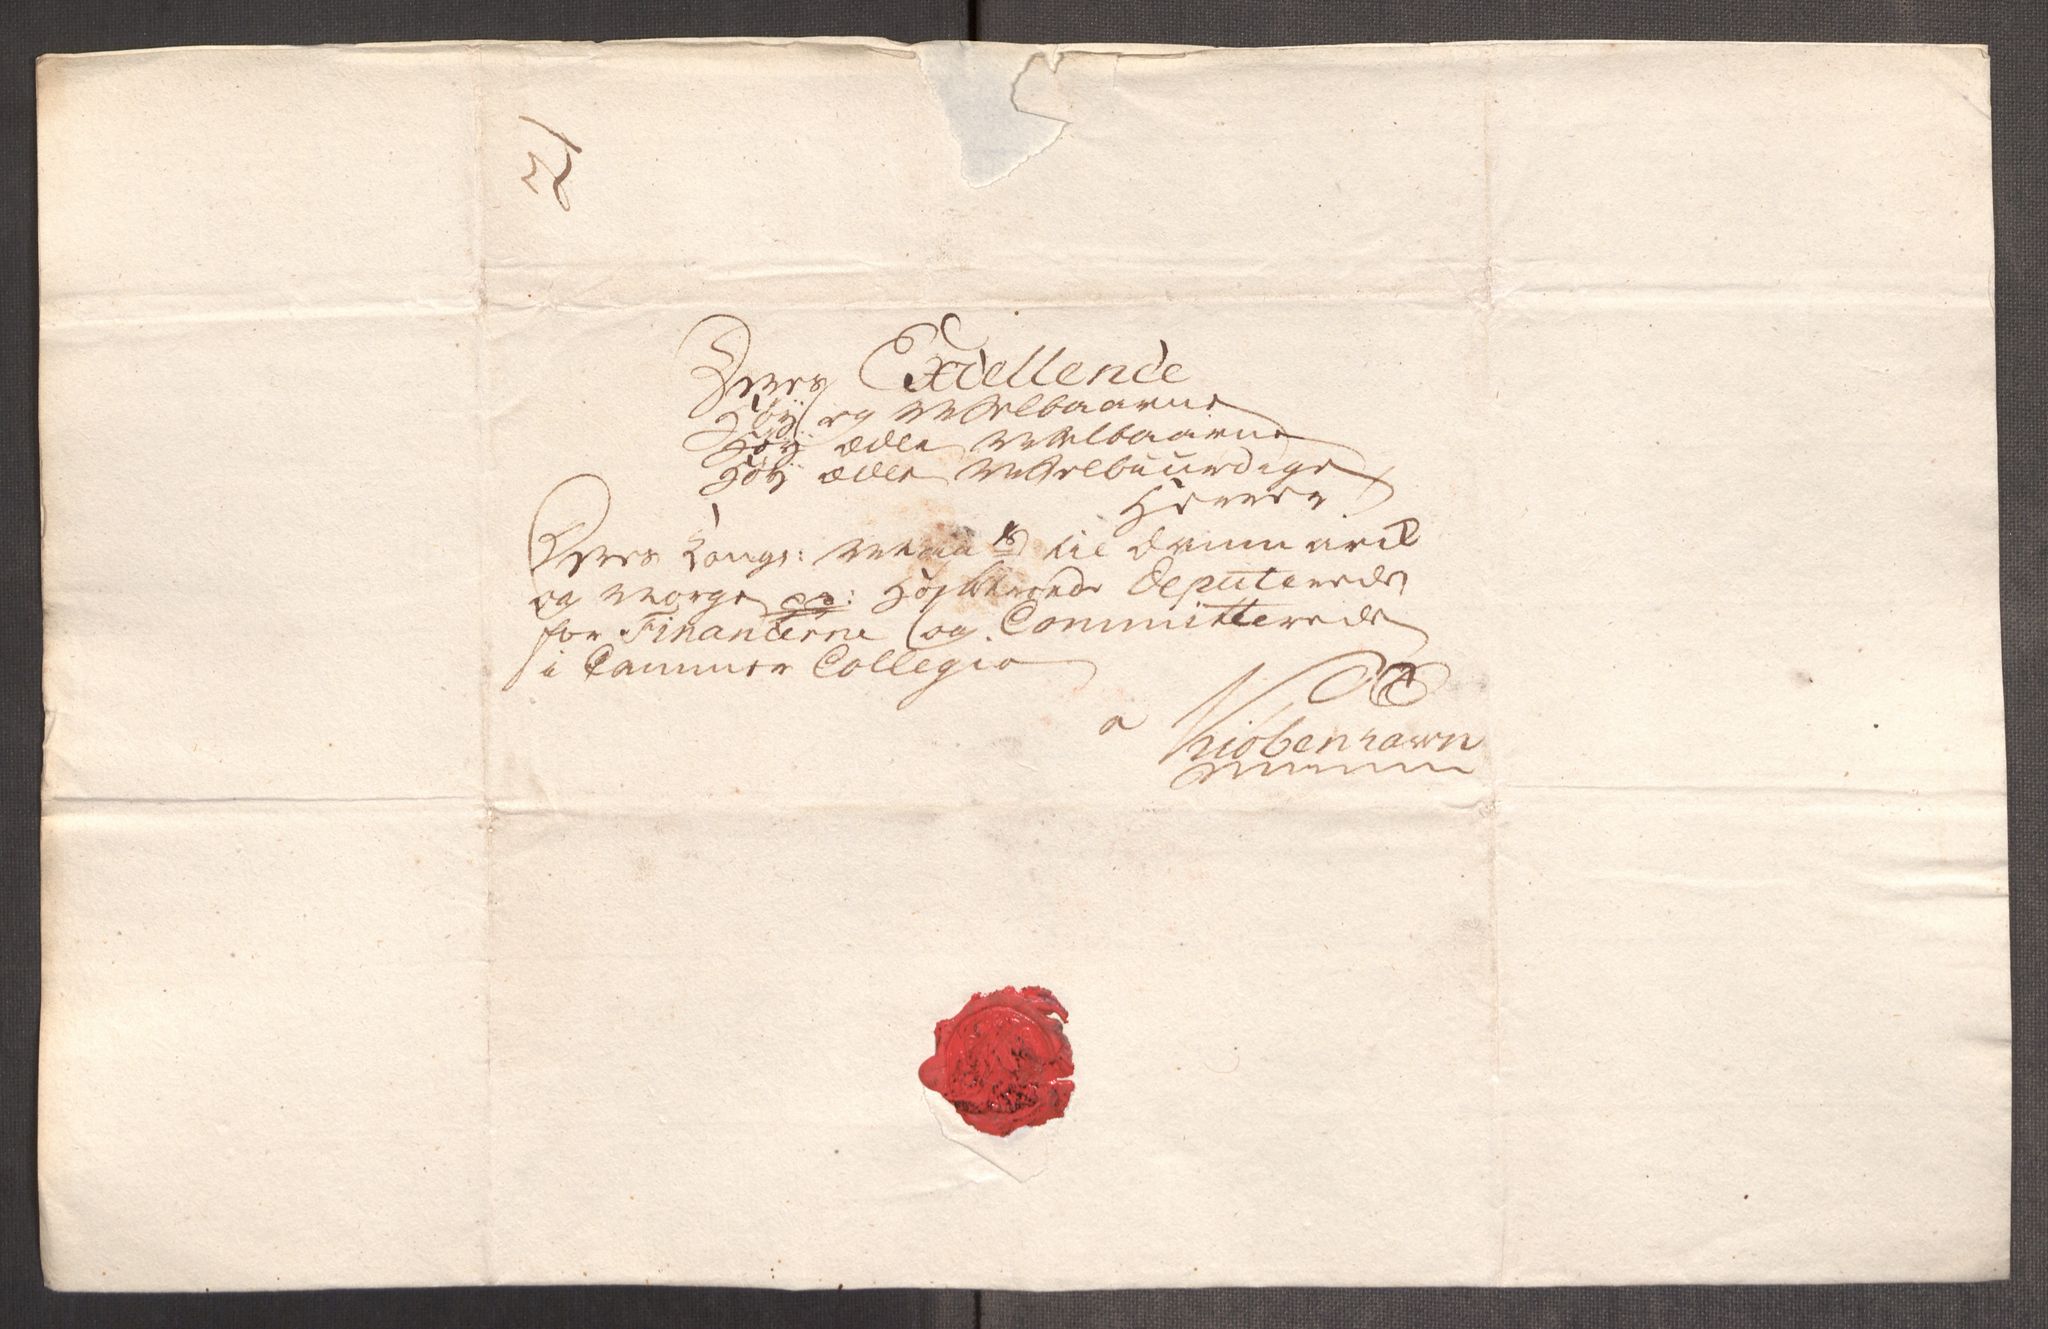 Deres Excellence
Høy og Velbaarne
Høy ædle Velbaarne
Høy ædle Velbuurdige
Herrer
Deres Kongl: May til Danmarck
og Norge Høybetroede Deputerede
for Financerne og Committerede
i Cammer Collegio
a Kiøbenhawn